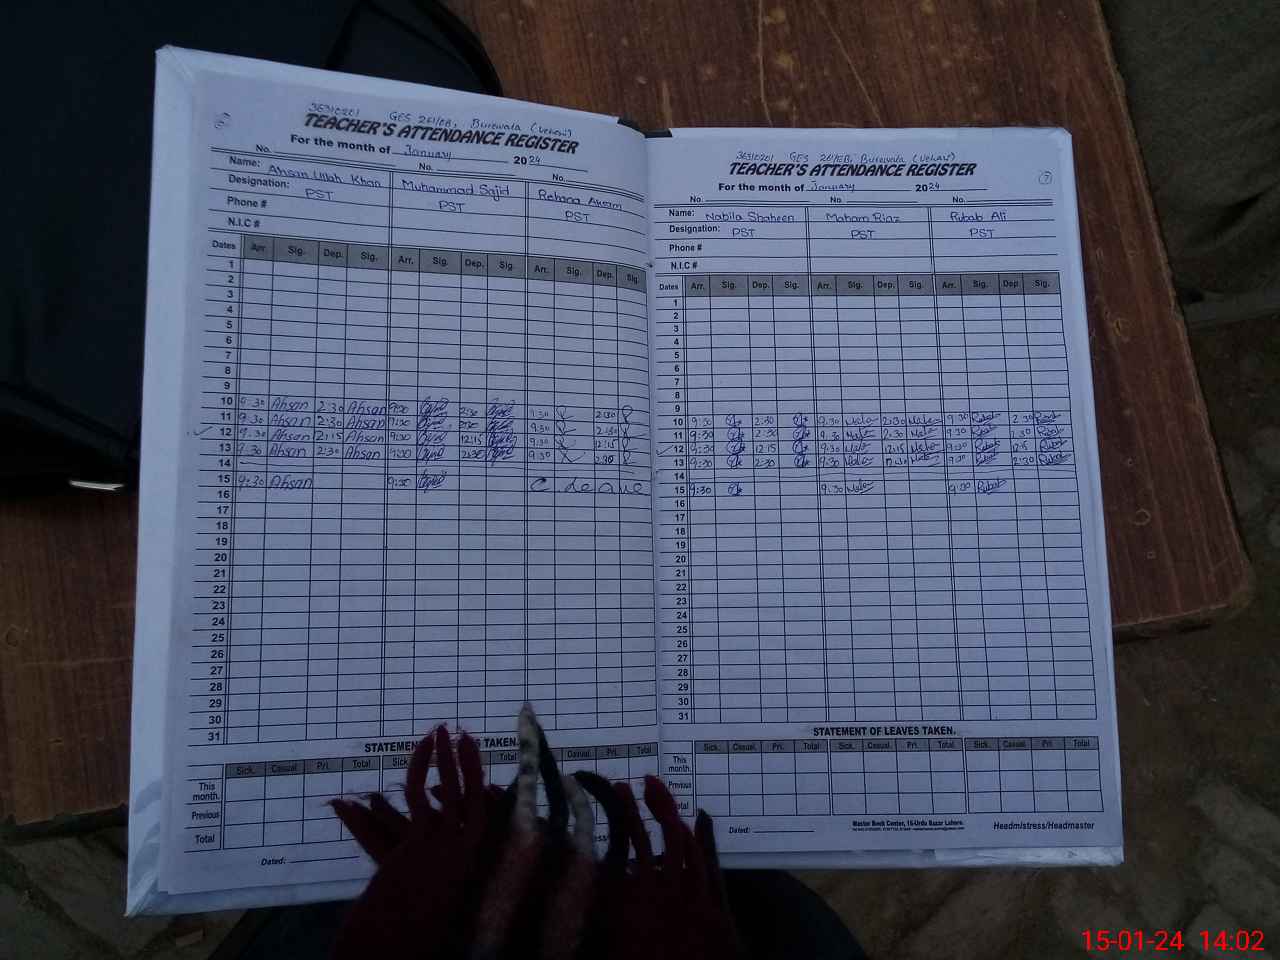 36310201 GES 261/EB, Burewala (Vehari)
TEACHER'S ATTENDANCE REGISTER
For the month of January 2024
No. No. No.
Name: Ahsan Ullah Khan Muhammad Sajid Rehana Akram
Designation: PST PST PST
Phone #
N.I.C #
Dates Arr. Sig. Dep. Sig. Arr. Sig. Dep. Sig. Arr. Sig. Dep. Sig.
1
2
3
4
5
6
7
8
9
10 9:30 Ahsan 2:30 Ahsan 9:30 2:30 9:30 2:30
11 9:30 Ahsan 2:30 Ahsan 9:30 2:30 9:30 2:30
12 9:30 Ahsan 12:15 Ahsan 9:30 12:15 9:30 12:15
13 9:30 Ahsan 2:30 Ahsan 9:30 2:30 9:30 2:30
14
15 9:30 Ahsan 9:30 C Leave
16
17
18
19
20
21
22
23
24
25
26
27
28
29
30
31
STATEMENT TAKEN.
Sick. Casual Pri. Total Sick Total Casual Pri. Total
This month.
Previous
Total
Dated:
36310201 GES 261/EB, Burewala (Vehari)
TEACHER'S ATTENDANCE REGISTER
7
For the month of January 2024
No. No. No.
Name: Nabila Shaheen Maham Riaz Rubab Ali
Designation: PST PST PST
Phone #
N.I.C #
Dates Arr. Sig. Dep. Sig. Arr. Sig. Dep. Sig. Arr. Sig. Dep Sig.
1
2
3
4
5
6
7
8
9
10 9:30 2:30 9:30 2:30 9:30 Rubab 2:30 Rubab
11 9:30 2:30 9:30 2:30 9:30 Rubab 2:30 Rubab
12 9:30 12:15 9:30 12:15 9:30 Rubab 12:15 Rubab
13 9:30 2:30 9:30 9:30 Rubab 2:30 Rubab
14
15 9:30 9:30 9:30 Rubab
16
17
18
19
20
21
22
23
24
25
26
27
28
29
30
31
STATEMENT OF LEAVES TAKEN.
Sick. Casual. Pri. Total Sick. Casual. Pri. Total Sick. Casual. Pri. Total
This month.
Previous
Total
Dated:
Master Book Center, 15-Urdu Bazar Lahore.
Headmistress/Headmaster
15-01-24 14:02